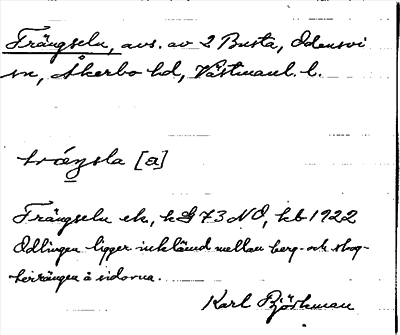 Trängseln, avs. av 2 Busta, Odensvi
sn, Åkerbo hd, Västmanl. l.
trä́ŋsla [a]
Trängseln ek, 73 NO, kb 1922
Odlingen ligger inklämd mellan berg- och skog-
terrängen å sidorna.
Karl Björkman